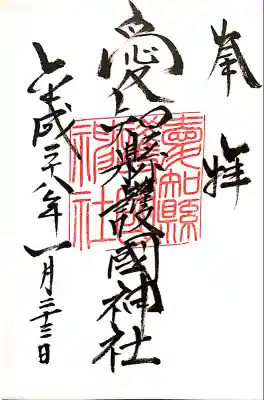 奉拝
愛知縣護國神社
愛知縣護國神社
平成二十八年一月二十三日